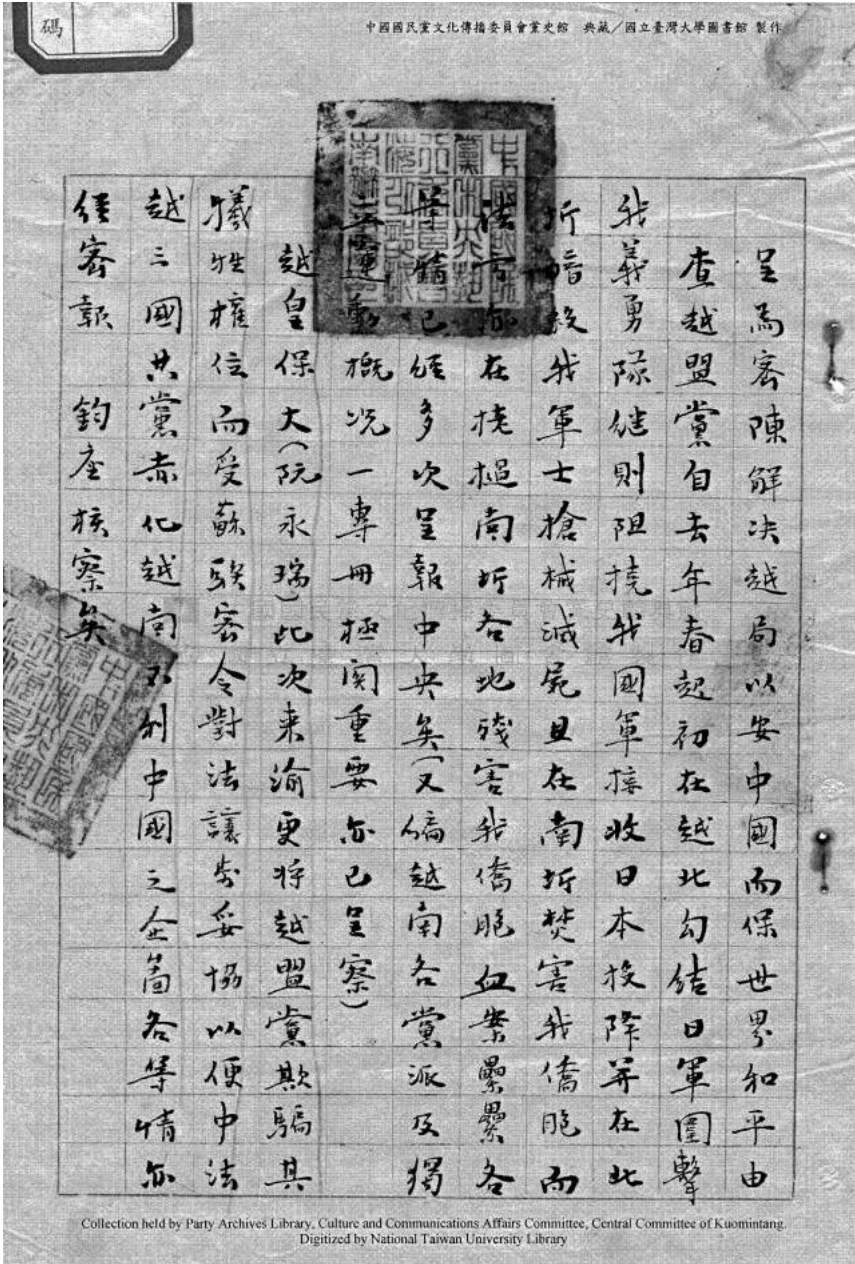 碼
中國國民黨文化傳播委員會黨史館 典藏／國立臺灣大學圖書館 製作
呈為密陳解決越局以安中國而保世界和平由
查越盟黨自去年春起初在越北勾結日軍圍擊
我義勇隊繼則阻撓我國軍接收日本投降并在北
圻暗殺我軍士搶械滅屍且在南圻焚害我僑胞而
法方亦在挠槌南圻各地殘害我僑胞血案纍纍各
等情已經多次呈報中央矣（又編越南各黨派及獨
立運動概况一專冊極関重要亦已呈察）
越皇保大（阮永瑞）此次来渝更將越盟黨欺騙其
犧牲權位而受蘇联密令對法讓步妥協以便中法
越三國共黨赤化越南不利中國之企啚各等情亦
經密報 鈞座核察矣
Collection held by Party Archives Library, Culture and Communications Affairs Committee, Central Committee of Kuomintang.
Digitized by National Taiwan University Library